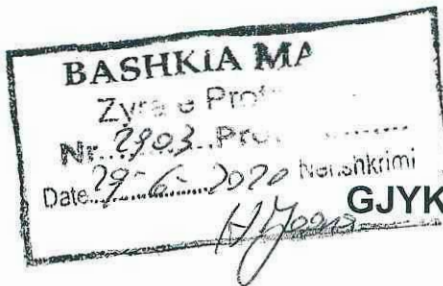 BASHKIA MA
Zyra e Prot
Nr. 2903 Prot
Date 29-6-2020 Nënshkrimi
GJYK